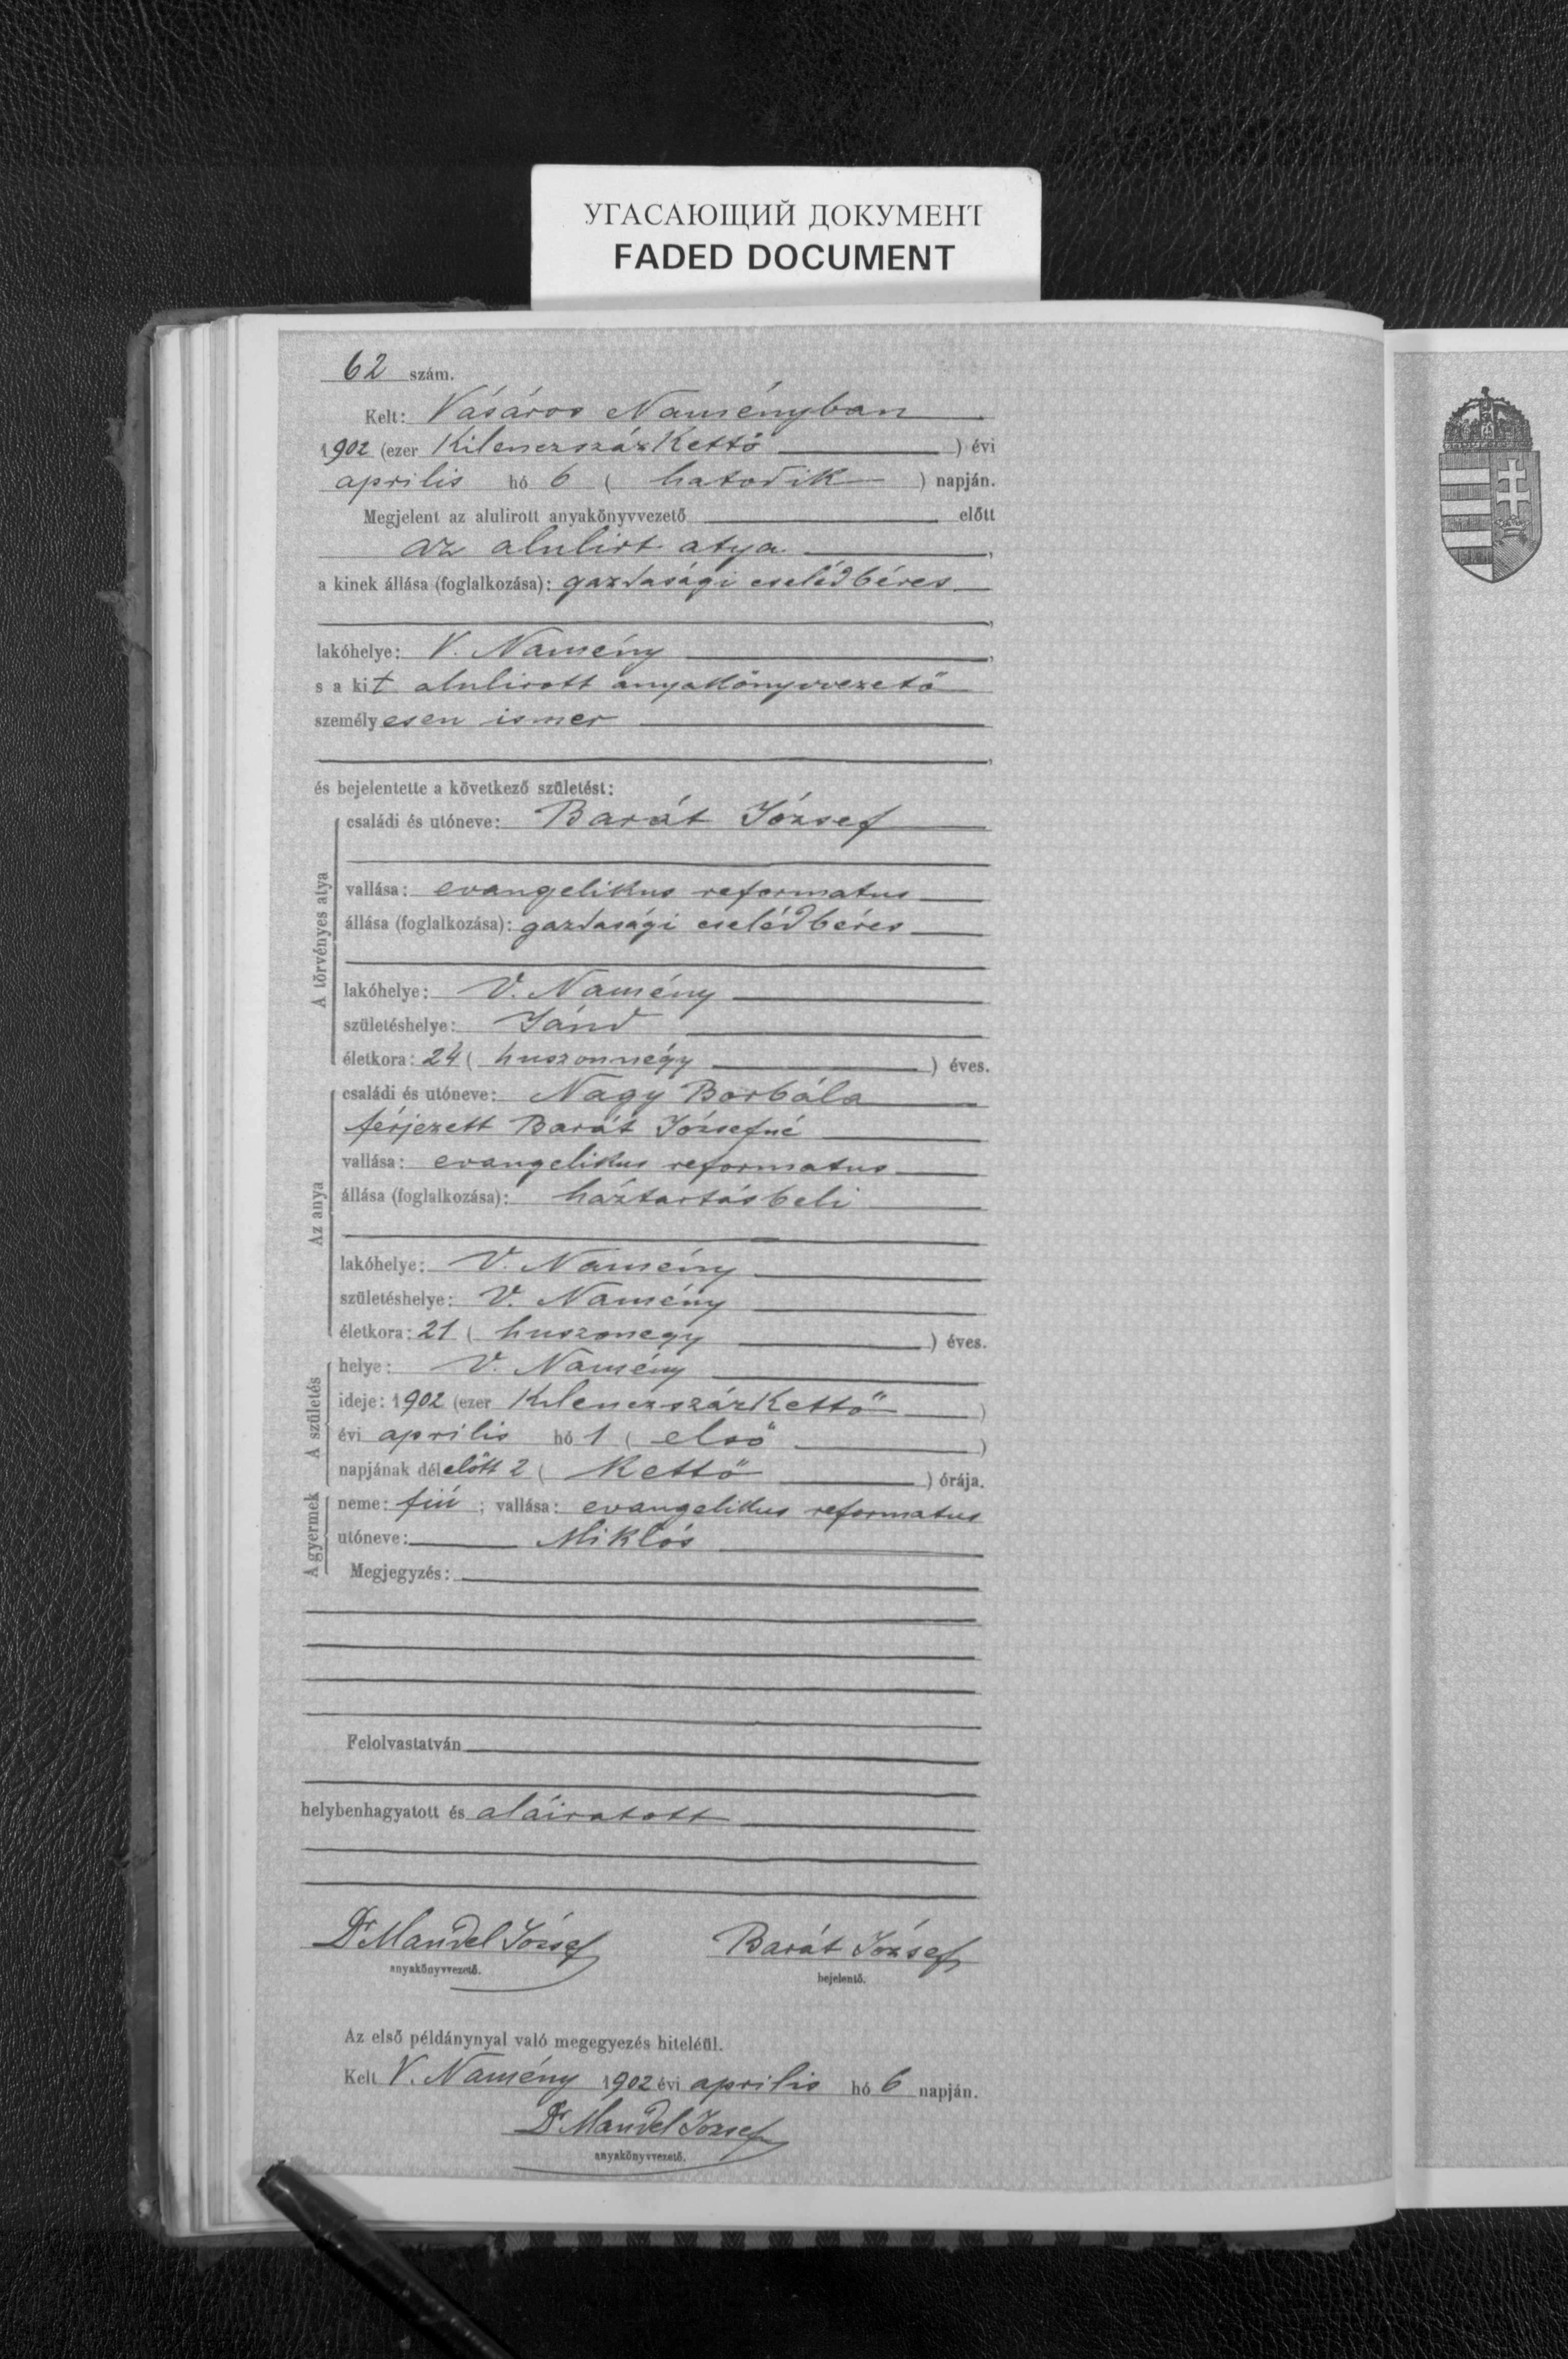 УГАСАЮЩИЙ ДОКУМЕНТ
FADED DOCUMENT
62 szám.
Kelt: Vásáros Naményban
1902 (ezer kilenczszázkettő ) évi
aprilis hó 6 ( hatodik ) napján.
Megjelent az alulirott anyakönyvvezető előtt
az alulirt atya ,
a kinek állása (foglalkozása): gazdasági cselédbéres
,
lakóhelye: V. Namény ,
s a kit alulirott anyakönyvvezető
személyesen ismer
,
és bejelentette a következő születést:
A törvényes atya
családi és utóneve: Barát József
vallása: evangelikus reformatus
állása (foglalkozása): gazdasági cselédbéres
lakóhelye: V. Namény
születéshelye: Jánd
életkora: 24 ( huszonnégy ) éves.
Az anya
családi és utóneve: Nagy Borbála
férjezett Barát Józsefné
vallása: evangelikus reformatus
állása (foglalkozása): háztartásbeli
lakóhelye: V. Namény
születéshelye: V. Namény
életkora: 21 ( huszonegy ) éves.
A születés
helye: V. Namény
ideje: 1902 (ezer kilenczszázkettő )
évi aprilis hó 1 ( első )
napjának délelőtt 2 ( kettő ) órája.
A gyermek
neme: fiú ; vallása: evangelikus reformatus
utóneve: Miklós
Megjegyzés:
Felolvastatván
helybenhagyatott és aláiratott
Dr Mandel József Barát József
anyakönyvvezető. bejelentő.
Az első példánynyal való megegyezés hiteléül.
Kelt V. Namény 1902 évi aprilis hó 6 napján.
Dr Mandel József
anyakönyvvezető.